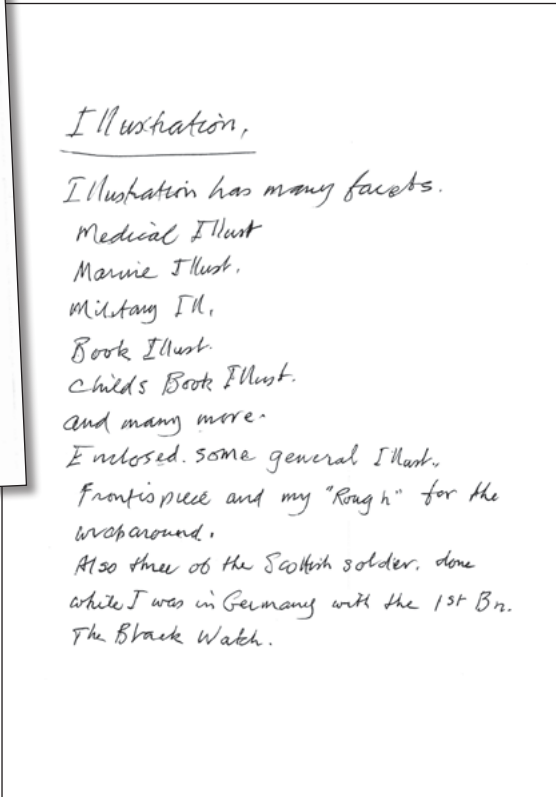 Illustration.
Illustration has many facets.
Medical Illust
Marine Illust.
Military Ill.
Book Illust.
Childs Book Illust.
and many more.
Enclosed. some general Illust.,
Frontispiece and my "Rough" for the
wraparound.
Also three of the Scottish soldier. done
while I was in Germany with the 1st Bn.
The Black Watch.